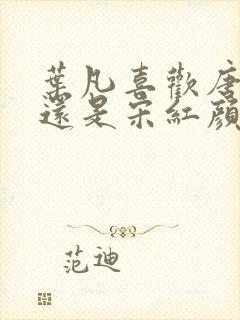 葉凡喜歡唐
還是宋紅顏
范迪